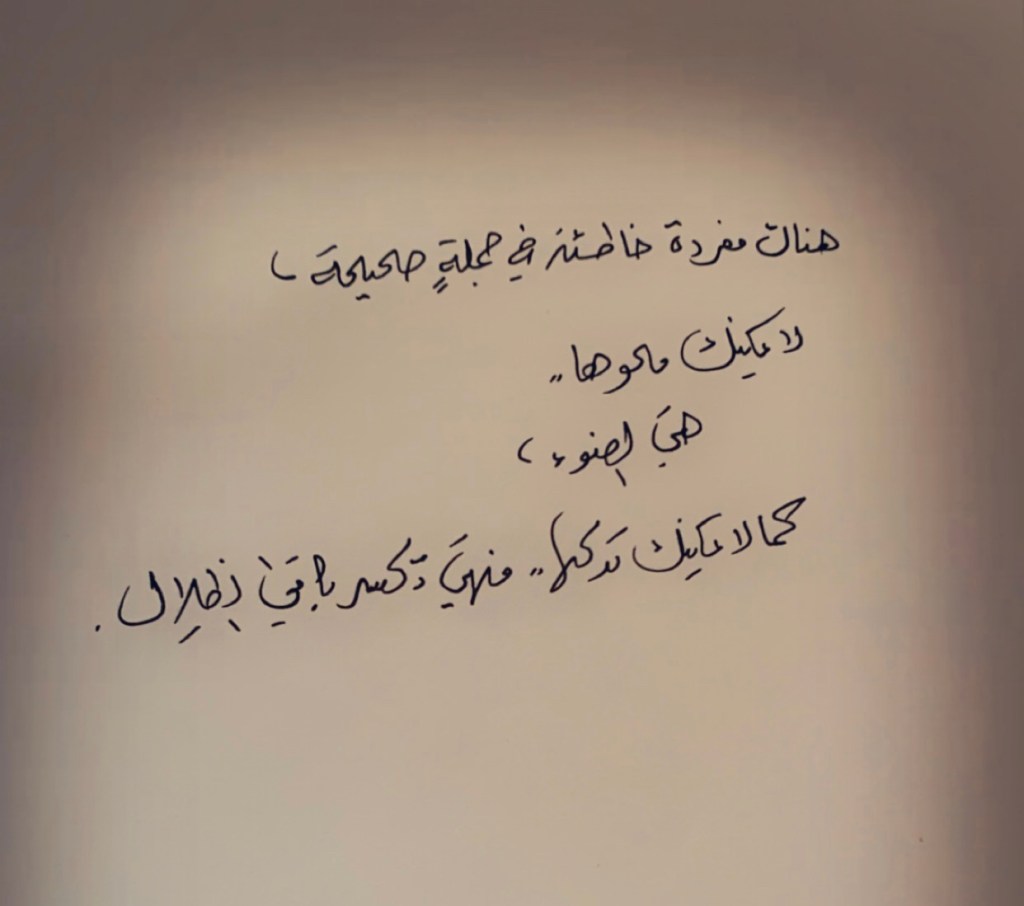 هناك مفردة خاطئة في جملةٍ صحيحة،
لا يمكنك محوها..
هيَ الضوء،
كما لا يمكنك تركها.. فهيَ تكسر باقي الظِلال.